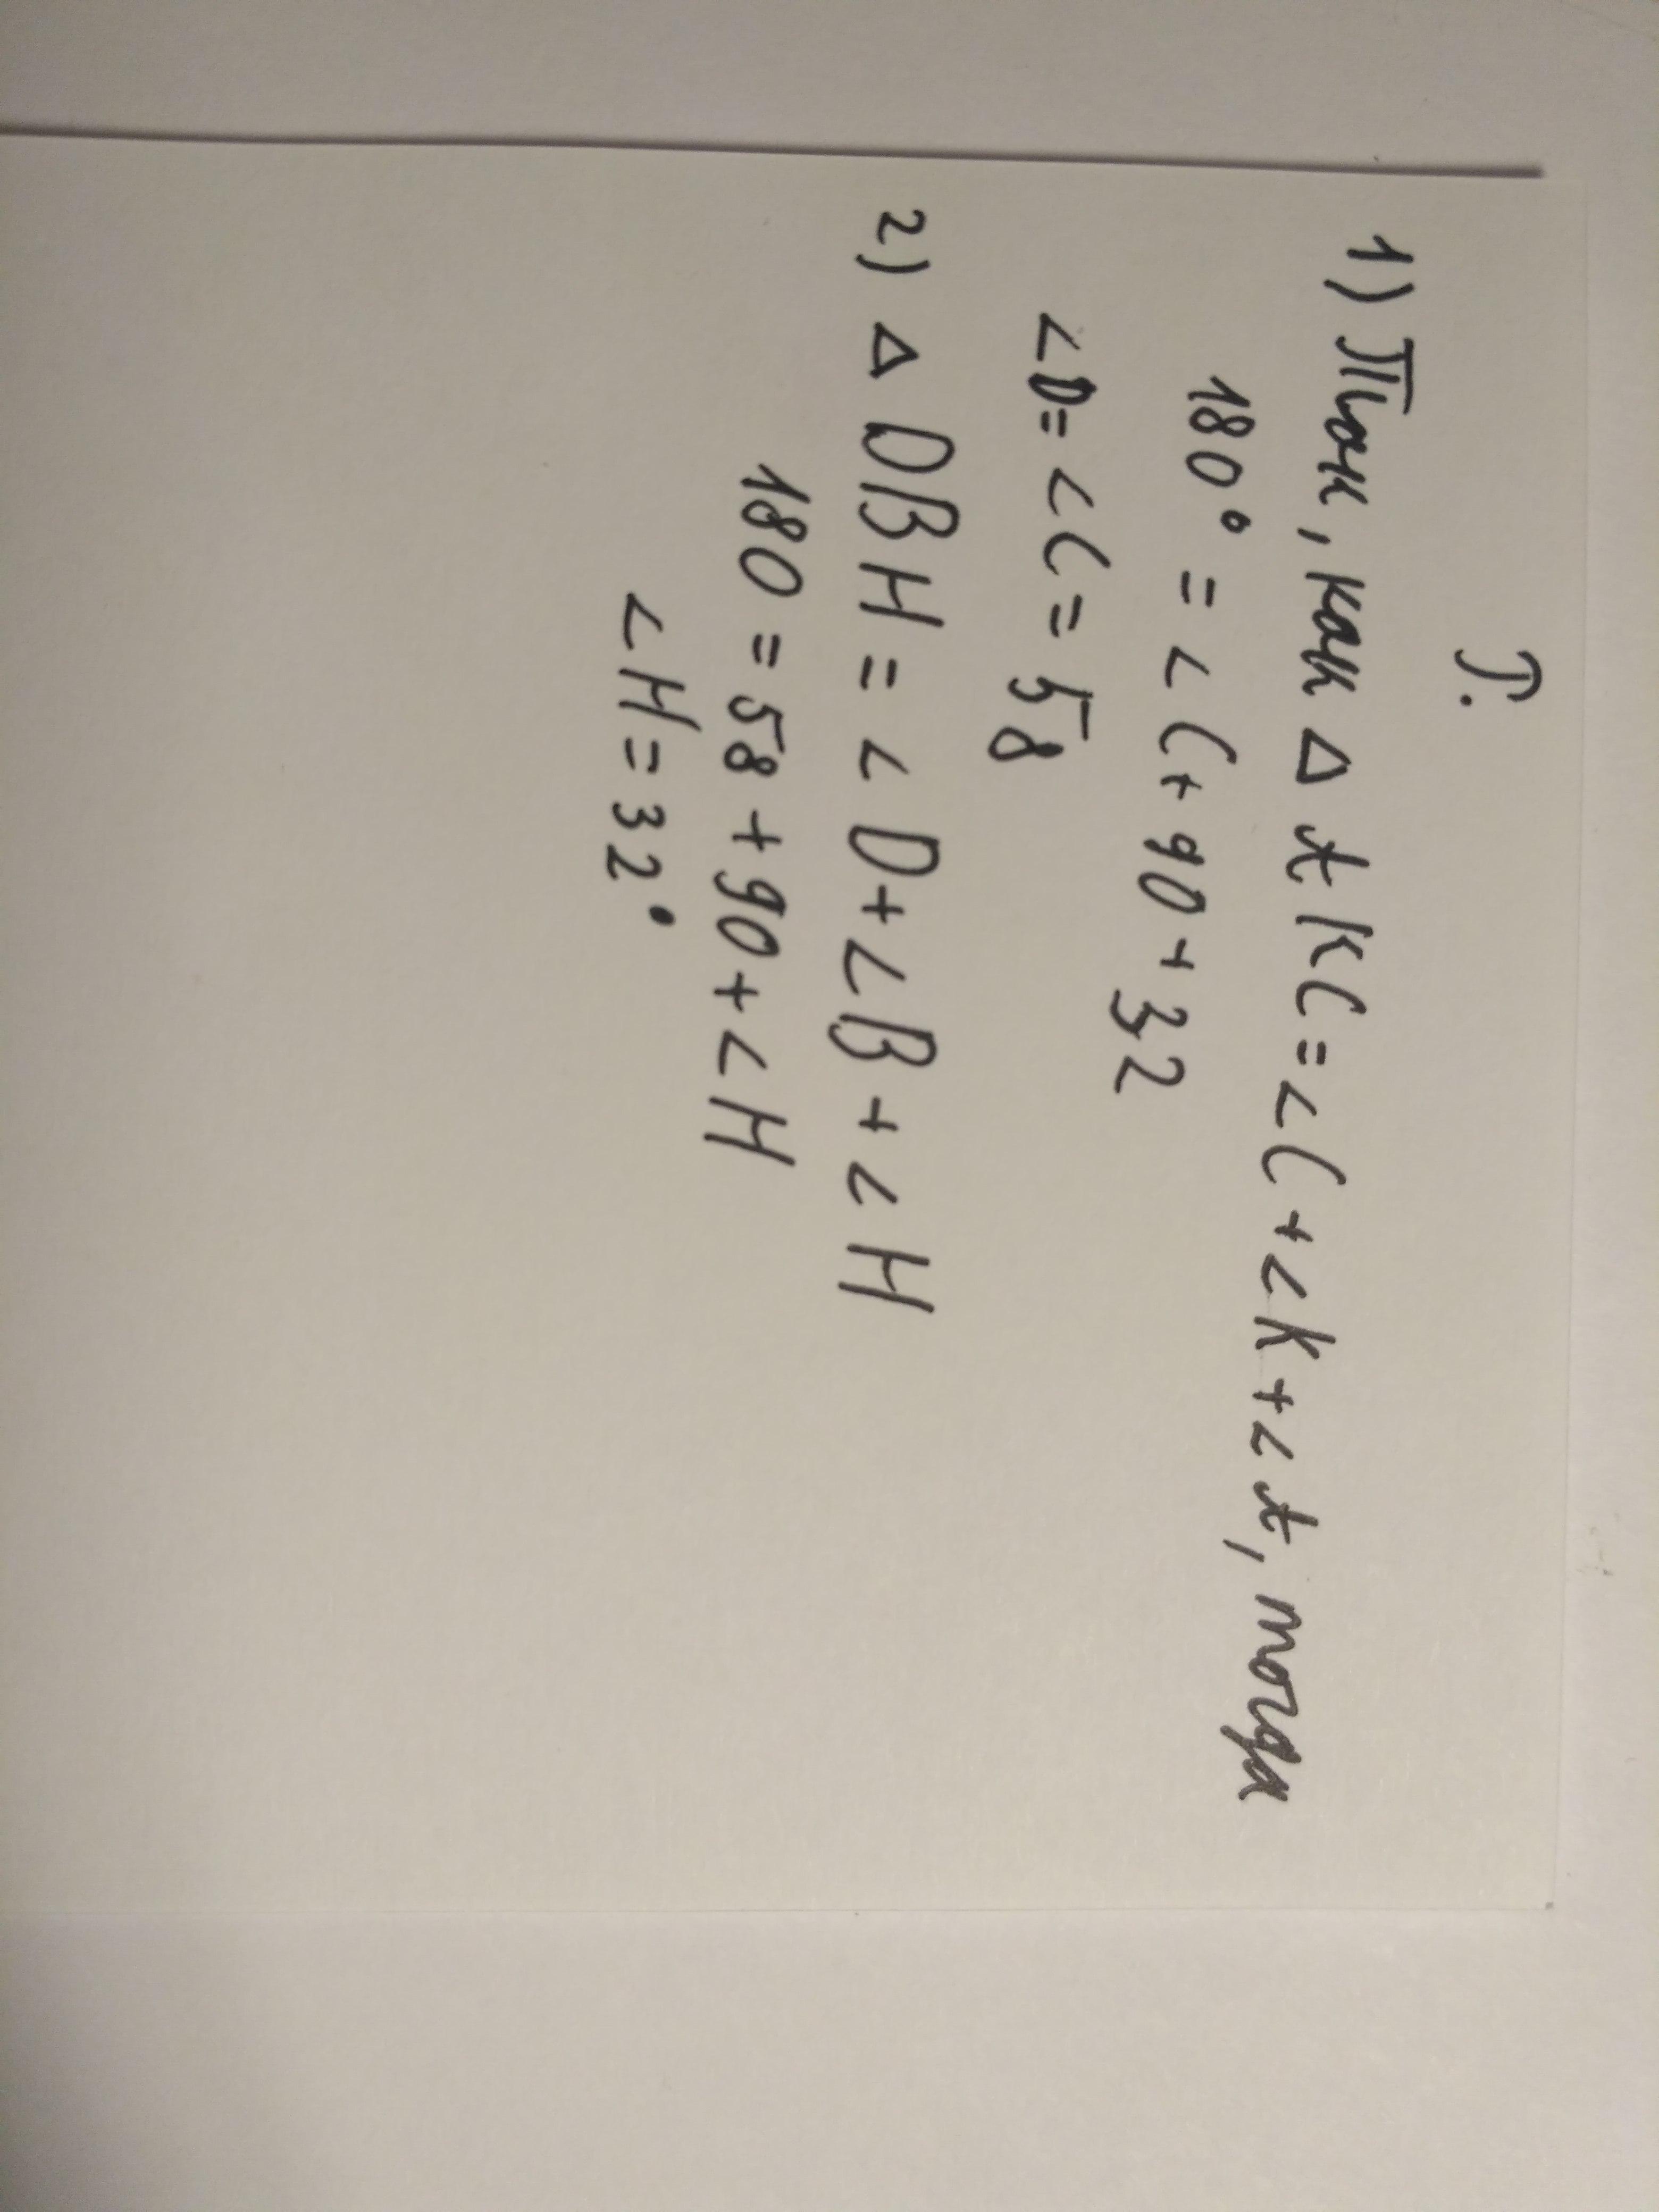 Р.
1) Так, как Δ AKC = ∠C + ∠K + ∠A, тогда
180° = ∠C + 90 + 32
∠D = ∠C = 58
2) Δ DBH = ∠D + ∠B + ∠H
180 = 58 + 90 + ∠H
∠H = 32°